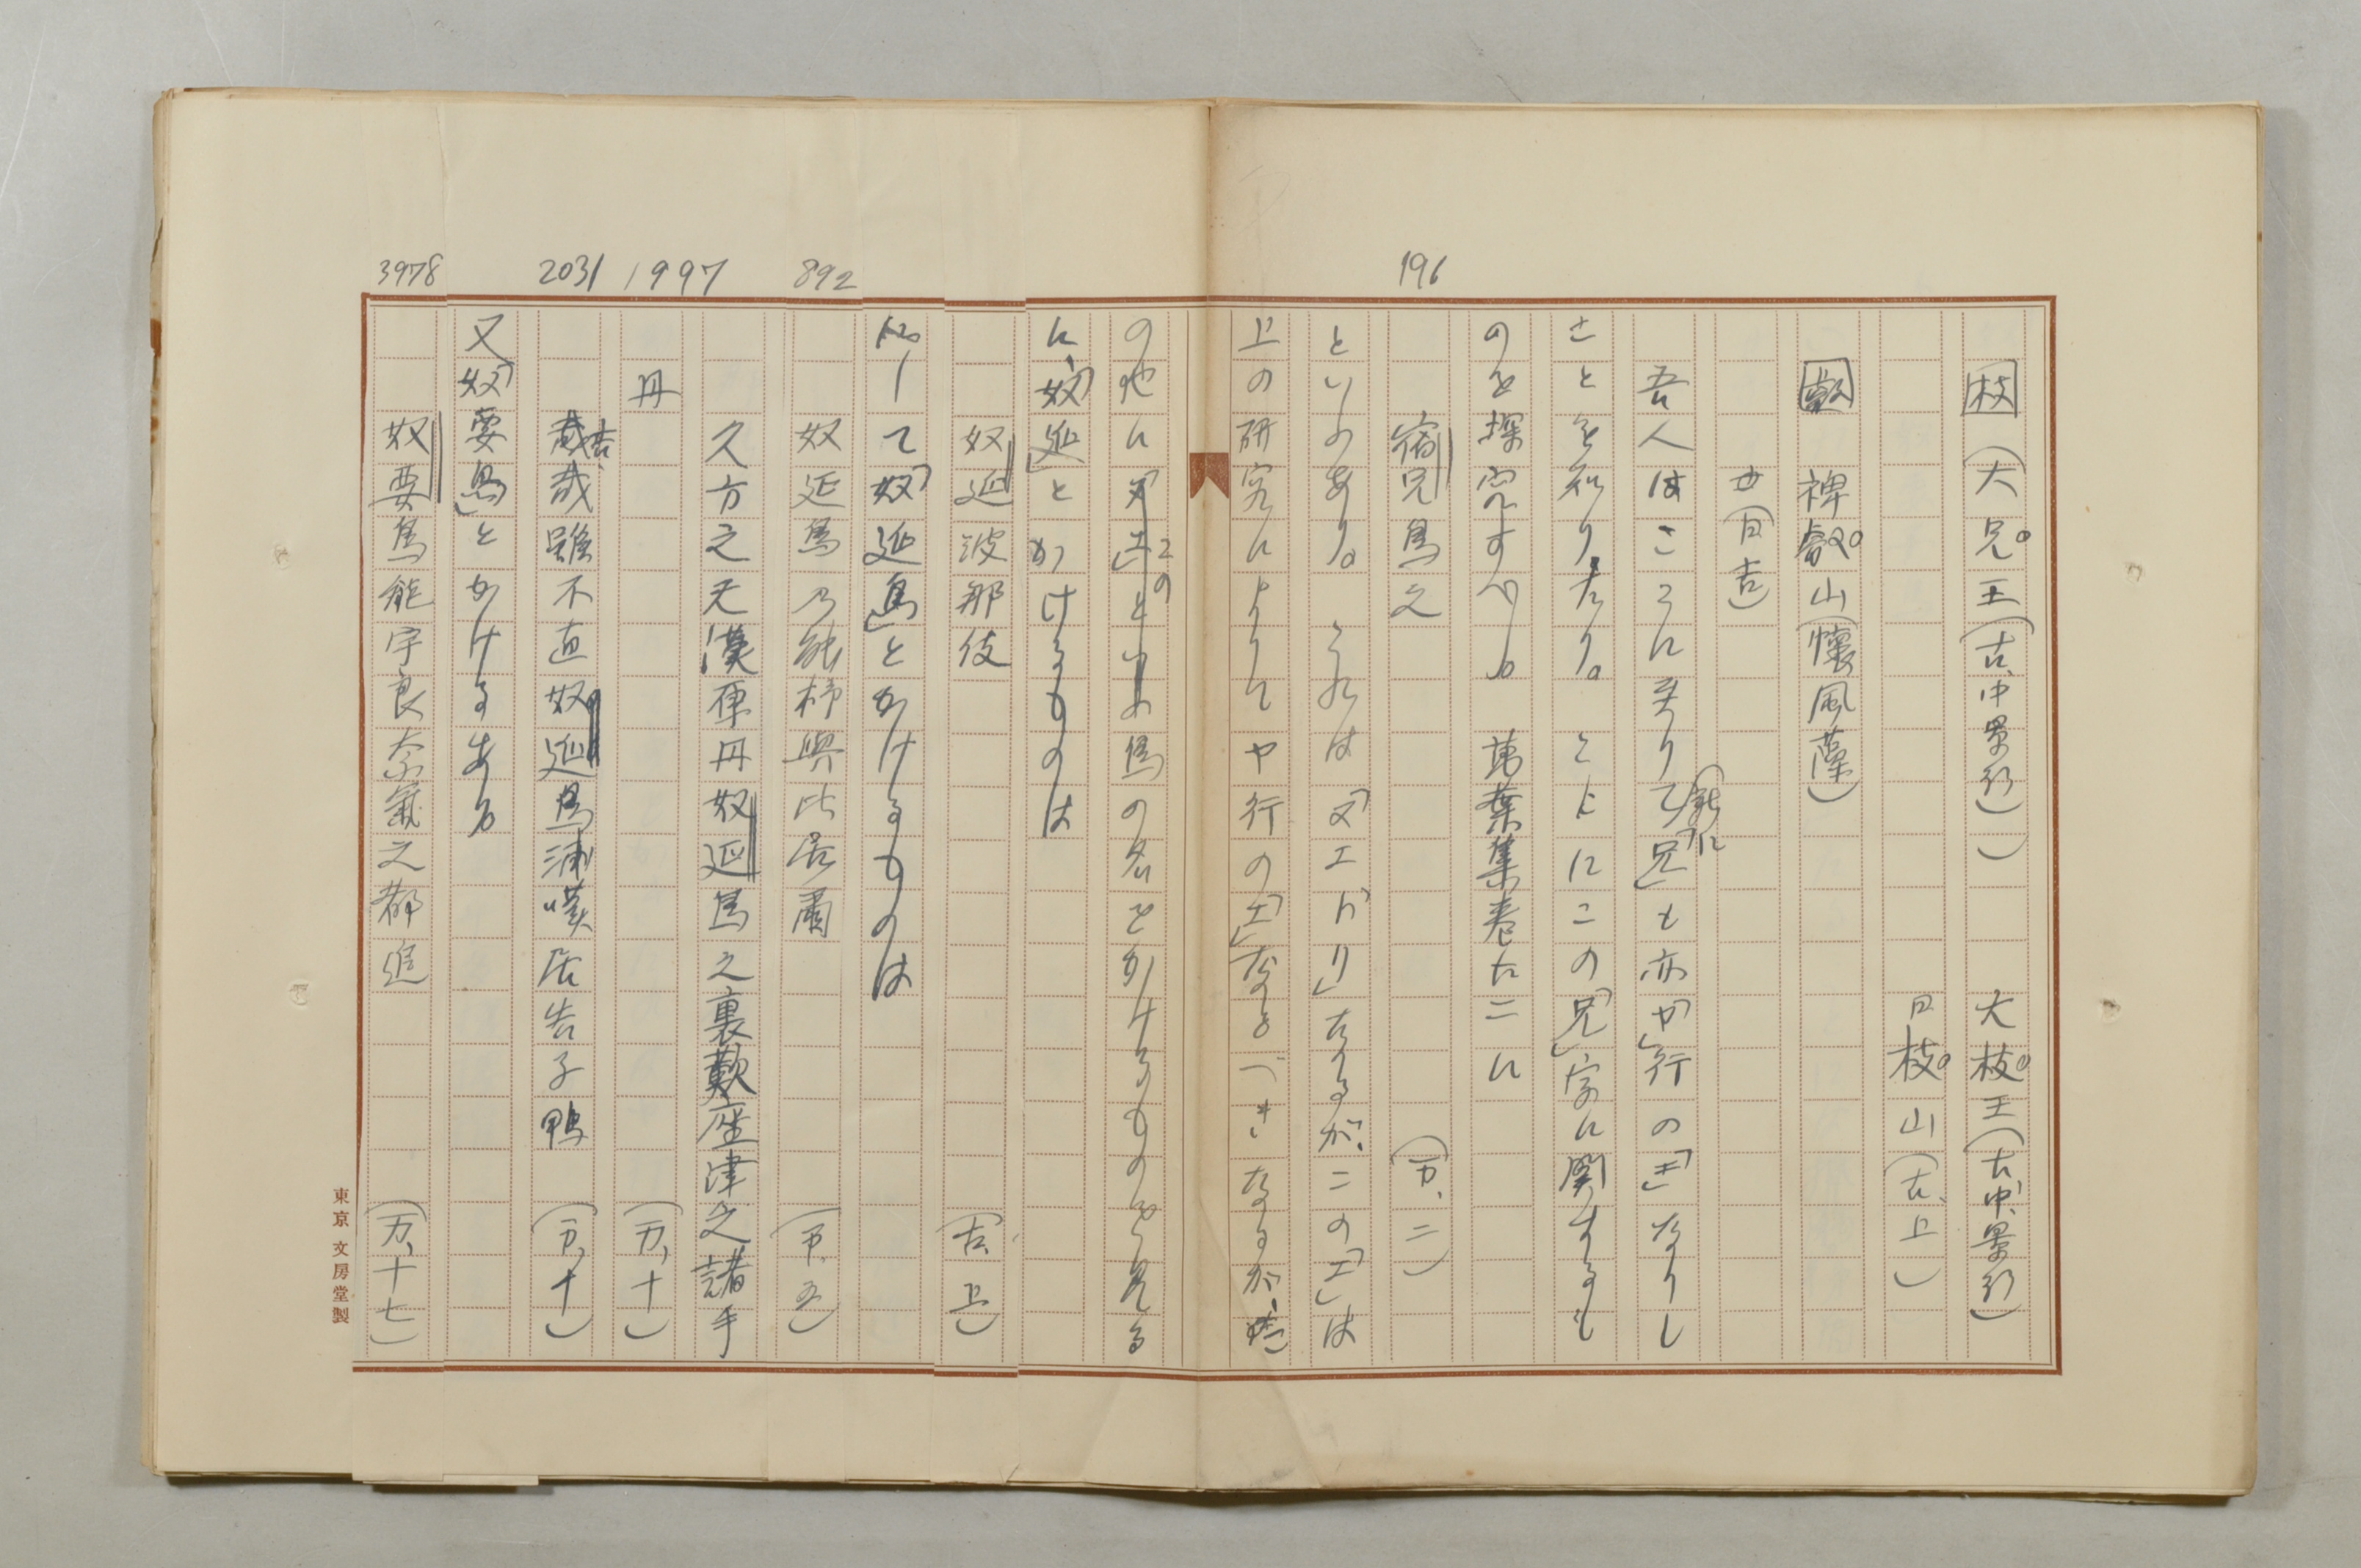 枝 (大兄王(古、中景行)) 大枝王(古、中、景行)
日枝山(古、上)
叡 裨叡山(懐風藻)
(日吉)
吾人はここに至りて新に「兄」も亦「や」行の「エ」なりし
ことを知りたり。ともにこの「兄」字に関するも
のを探究すべし。萬葉集巻十二に
196
宿兄鳥之 (万、二)
といふあり。これは「ヌエドリ」なるが、この「エ」は
上の研究によりてヤ行の「エ」なるべきなるが、
の他に この鳥の名をかけるものを見る
に、「奴延」とかけるものは
奴延波那伎 (古、上)
にして「奴延鳥」とかけるものは
892
奴延鳥乃能杼與比居爾 (万、五)
久方之天漢原丹奴延鳥之裏歎座津之諸手
1997
丹 (万、十)
2031
哉雖不直奴延鳥浦嘆居告子鴨 (万、十)
又「奴要鳥」とかけるあり
3978
奴要鳥能宇良奈氣之都追 (万、十七)
東京 文房堂製